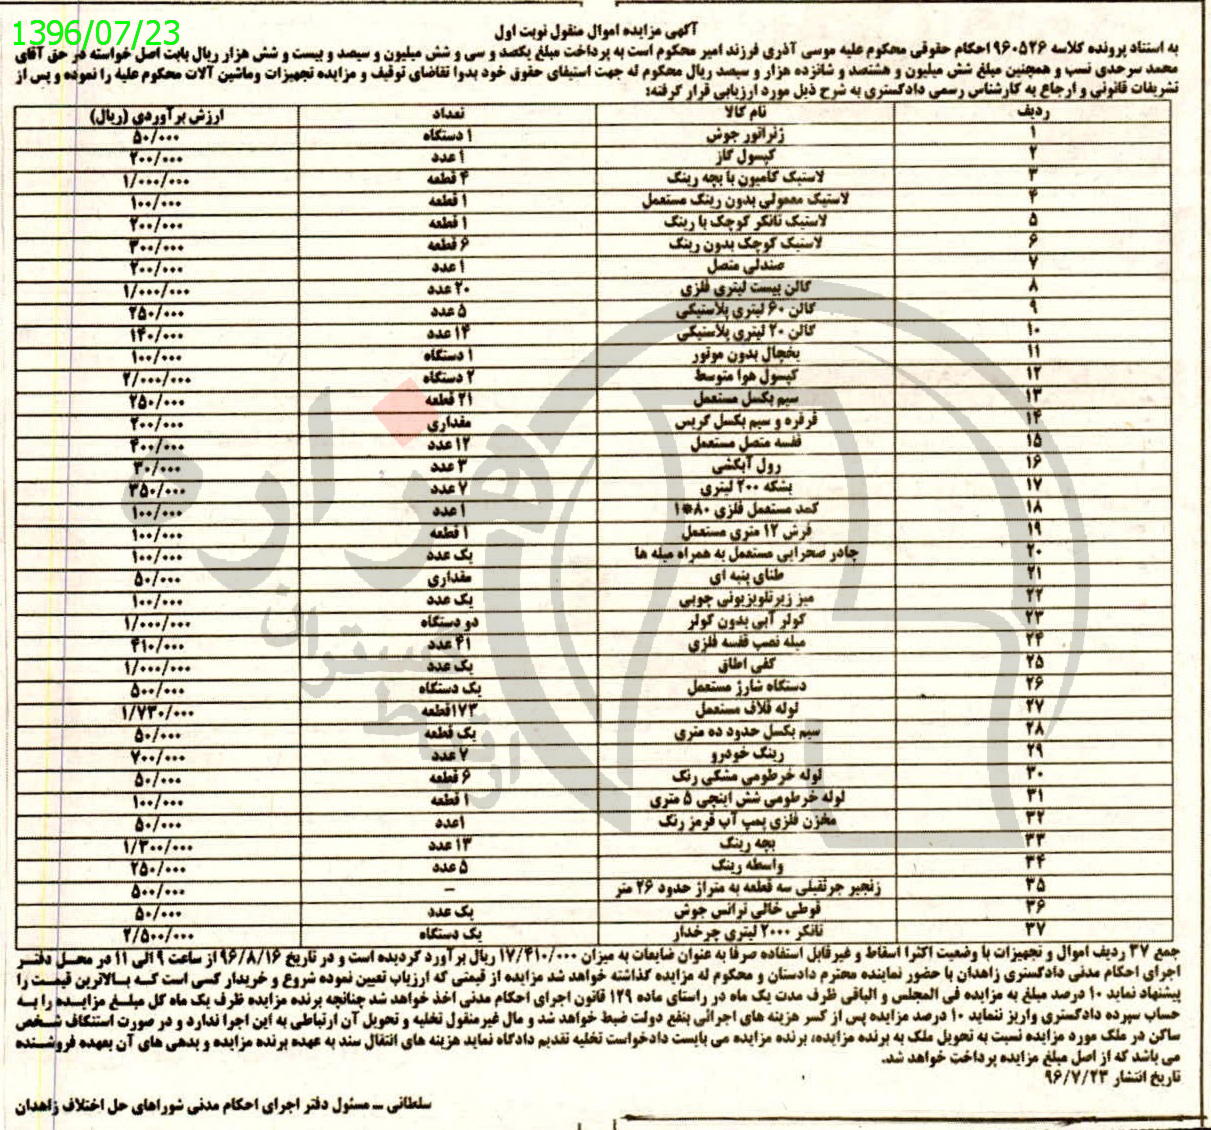 1396/07/23
آگهی مزایده اموال منقول نوبت اول
به استناد پرونده کلاسه ۹۶۰۵۲۶ احکام حقوقی محکوم علیه موسی آذری فرزند امیر محکوم است به پرداخت مبلغ یکصد و سی و شش میلیون و سیصد و بیست و شش هزار ریال بابت اصل خواسته در حق آقای
محمد سرحدی نسب و همچنین مبلغ شش میلیون و هشتصد و شانزده هزار و سیصد ریال محکوم له جهت استیفای حقوق خود بدوا تقاضای توقیف و مزایده تجهیزات وماشین آلات محکوم علیه را نموده و پس از
تشریفات قانونی و ارجاع به کارشناس رسمی دادگستری به شرح ذیل مورد ارزیابی قرار گرفته:
ردیف نام کالا تعداد ارزش برآوردی (ریال)
۱ ژنراتور جوش ۱ دستگاه ۵۰/۰۰۰
۲ کپسول گاز ۱ عدد ۲۰۰/۰۰۰
۳ لاستیک کامیون با بچه رینگ ۴ قطعه ۱/۰۰۰/۰۰۰
۴ لاستیک معمولی بدون رینگ مستعمل ۱ قطعه ۱۰۰/۰۰۰
۵ لاستیک تانکر کوچک با رینگ ۱ قطعه ۲۰۰/۰۰۰
۶ لاستیک کوچک بدون رینگ ۶ قطعه ۳۰۰/۰۰۰
۷ صندلی متصل ۱ عدد ۲۰۰/۰۰۰
۸ گالن بیست لیتری فلزی ۲۰ عدد ۱/۰۰۰/۰۰۰
۹ گالن ۶۰ لیتری پلاستیکی ۵ عدد ۲۵۰/۰۰۰
۱۰ گالن ۲۰ لیتری پلاستیکی ۱۴ عدد ۱۴۰/۰۰۰
۱۱ یخچال بدون موتور ۱ دستگاه ۱۰۰/۰۰۰
۱۲ کپسول هوا متوسط ۲ دستگاه ۲/۰۰۰/۰۰۰
۱۳ سیم بکسل مستعمل ۲۱ قطعه ۲۵۰/۰۰۰
۱۴ قرقره و سیم بکسل گریس مقداری ۲۰۰/۰۰۰
۱۵ قفسه متصل مستعمل ۱۲ عدد ۴۰۰/۰۰۰
۱۶ رول آبکشی ۳ عدد ۳۰/۰۰۰
۱۷ بشکه ۲۰۰ لیتری ۷ عدد ۳۵۰/۰۰۰
۱۸ کمد مستعمل فلزی ۸۰*۱ ۱ عدد ۱۰۰/۰۰۰
۱۹ فرش ۱۲ متری مستعمل ۱ قطعه ۱۰۰/۰۰۰
۲۰ چادر صحرایی مستعمل به همراه میله ها یک عدد ۱۰۰/۰۰۰
۲۱ طنای پنبه ای مقداری ۵۰/۰۰۰
۲۲ میز زیرتلویزیونی چوبی یک عدد ۱۰۰/۰۰۰
۲۳ کولر آبی بدون کولر دو دستگاه ۱/۰۰۰/۰۰۰
۲۴ میله نصب قفسه فلزی ۴۱ عدد ۴۱۰/۰۰۰
۲۵ کفی اطاق یک عدد ۱/۰۰۰/۰۰۰
۲۶ دستگاه شارژ مستعمل یک دستگاه ۵۰۰/۰۰۰
۲۷ لوله قلاف مستعمل ۱۷۳قطعه ۱/۷۳۰/۰۰۰
۲۸ سیم بکسل حدود ده متری یک قطعه ۵۰/۰۰۰
۲۹ رینگ خودرو ۷ عدد ۷۰۰/۰۰۰
۳۰ لوله خرطومی مشکی رنگ ۶ قطعه ۵۰/۰۰۰
۳۱ لوله خرطومی شش اینچی ۵ متری ۱ قطعه ۱۰۰/۰۰۰
۳۲ مخزن فلزی پمپ آب قرمز رنگ ۱عدد ۵۰/۰۰۰
۳۳ بچه رینگ ۱۳ عدد ۱/۳۰۰/۰۰۰
۳۴ واسطه رینگ ۵ عدد ۲۵۰/۰۰۰
۳۵ زنجیر چرثقیلی سه قطعه به متراژ حدود ۲۶ متر – ۵۰۰/۰۰۰
۳۶ قوطی خالی ترانس جوش یک عدد ۵۰/۰۰۰
۳۷ تانکر ۲۰۰۰ لیتری چرخدار یک دستگاه ۲/۵۰۰/۰۰۰
جمع ۳۷ ردیف اموال و تجهیزات با وضعیت اکثرا اسقاط و غیرقابل استفاده صرفا به عنوان ضایعات به میزان ۱۷/۴۱۰/۰۰۰ ریال برآورد گردیده است و در تاریخ ۹۶/۸/۱۶ از ساعت ۹ الی ۱۱ در محل دفتر
اجرای احکام مدنی دادگستری زاهدان با حضور نماینده محترم دادستان و محکوم له مزایده گذاشته خواهد شد مزایده از قیمتی که ارزیاب تعیین نموده شروع و خریدار کسی است که بالاترین قیمت را
پیشنهاد نماید ۱۰ درصد مبلغ به مزایده فی المجلس و الباقی ظرف مدت یک ماه در راستای ماده ۱۲۹ قانون اجرای احکام مدنی اخذ خواهد شد چنانچه برنده مزایده ظرف یک ماه کل مبلغ مزایده را به
حساب سپرده دادگستری واریز ننماید ۱۰ درصد مزایده پس از کسر هزینه های اجرائی بنفع دولت ضبط خواهد شد و مال غیرمنقول تخلیه و تحویل آن ارتباطی به این اجرا ندارد و در صورت استنکاف شخص
ساکن در ملک مورد مزایده نسبت به تحویل ملک به برنده مزایده، برنده مزایده می بایست دادخواست تخلیه تقدیم دادگاه نماید هزینه های انتقال سند به عهده برنده مزایده و بدهی های آن بعهده فروشنده
می باشد که از اصل مبلغ مزایده پرداخت خواهد شد.
تاریخ انتشار ۹۶/۷/۲۳
سلطانی – مسئول دفتر اجرای احکام مدنی شوراهای حل اختلاف زاهدان
هزاره